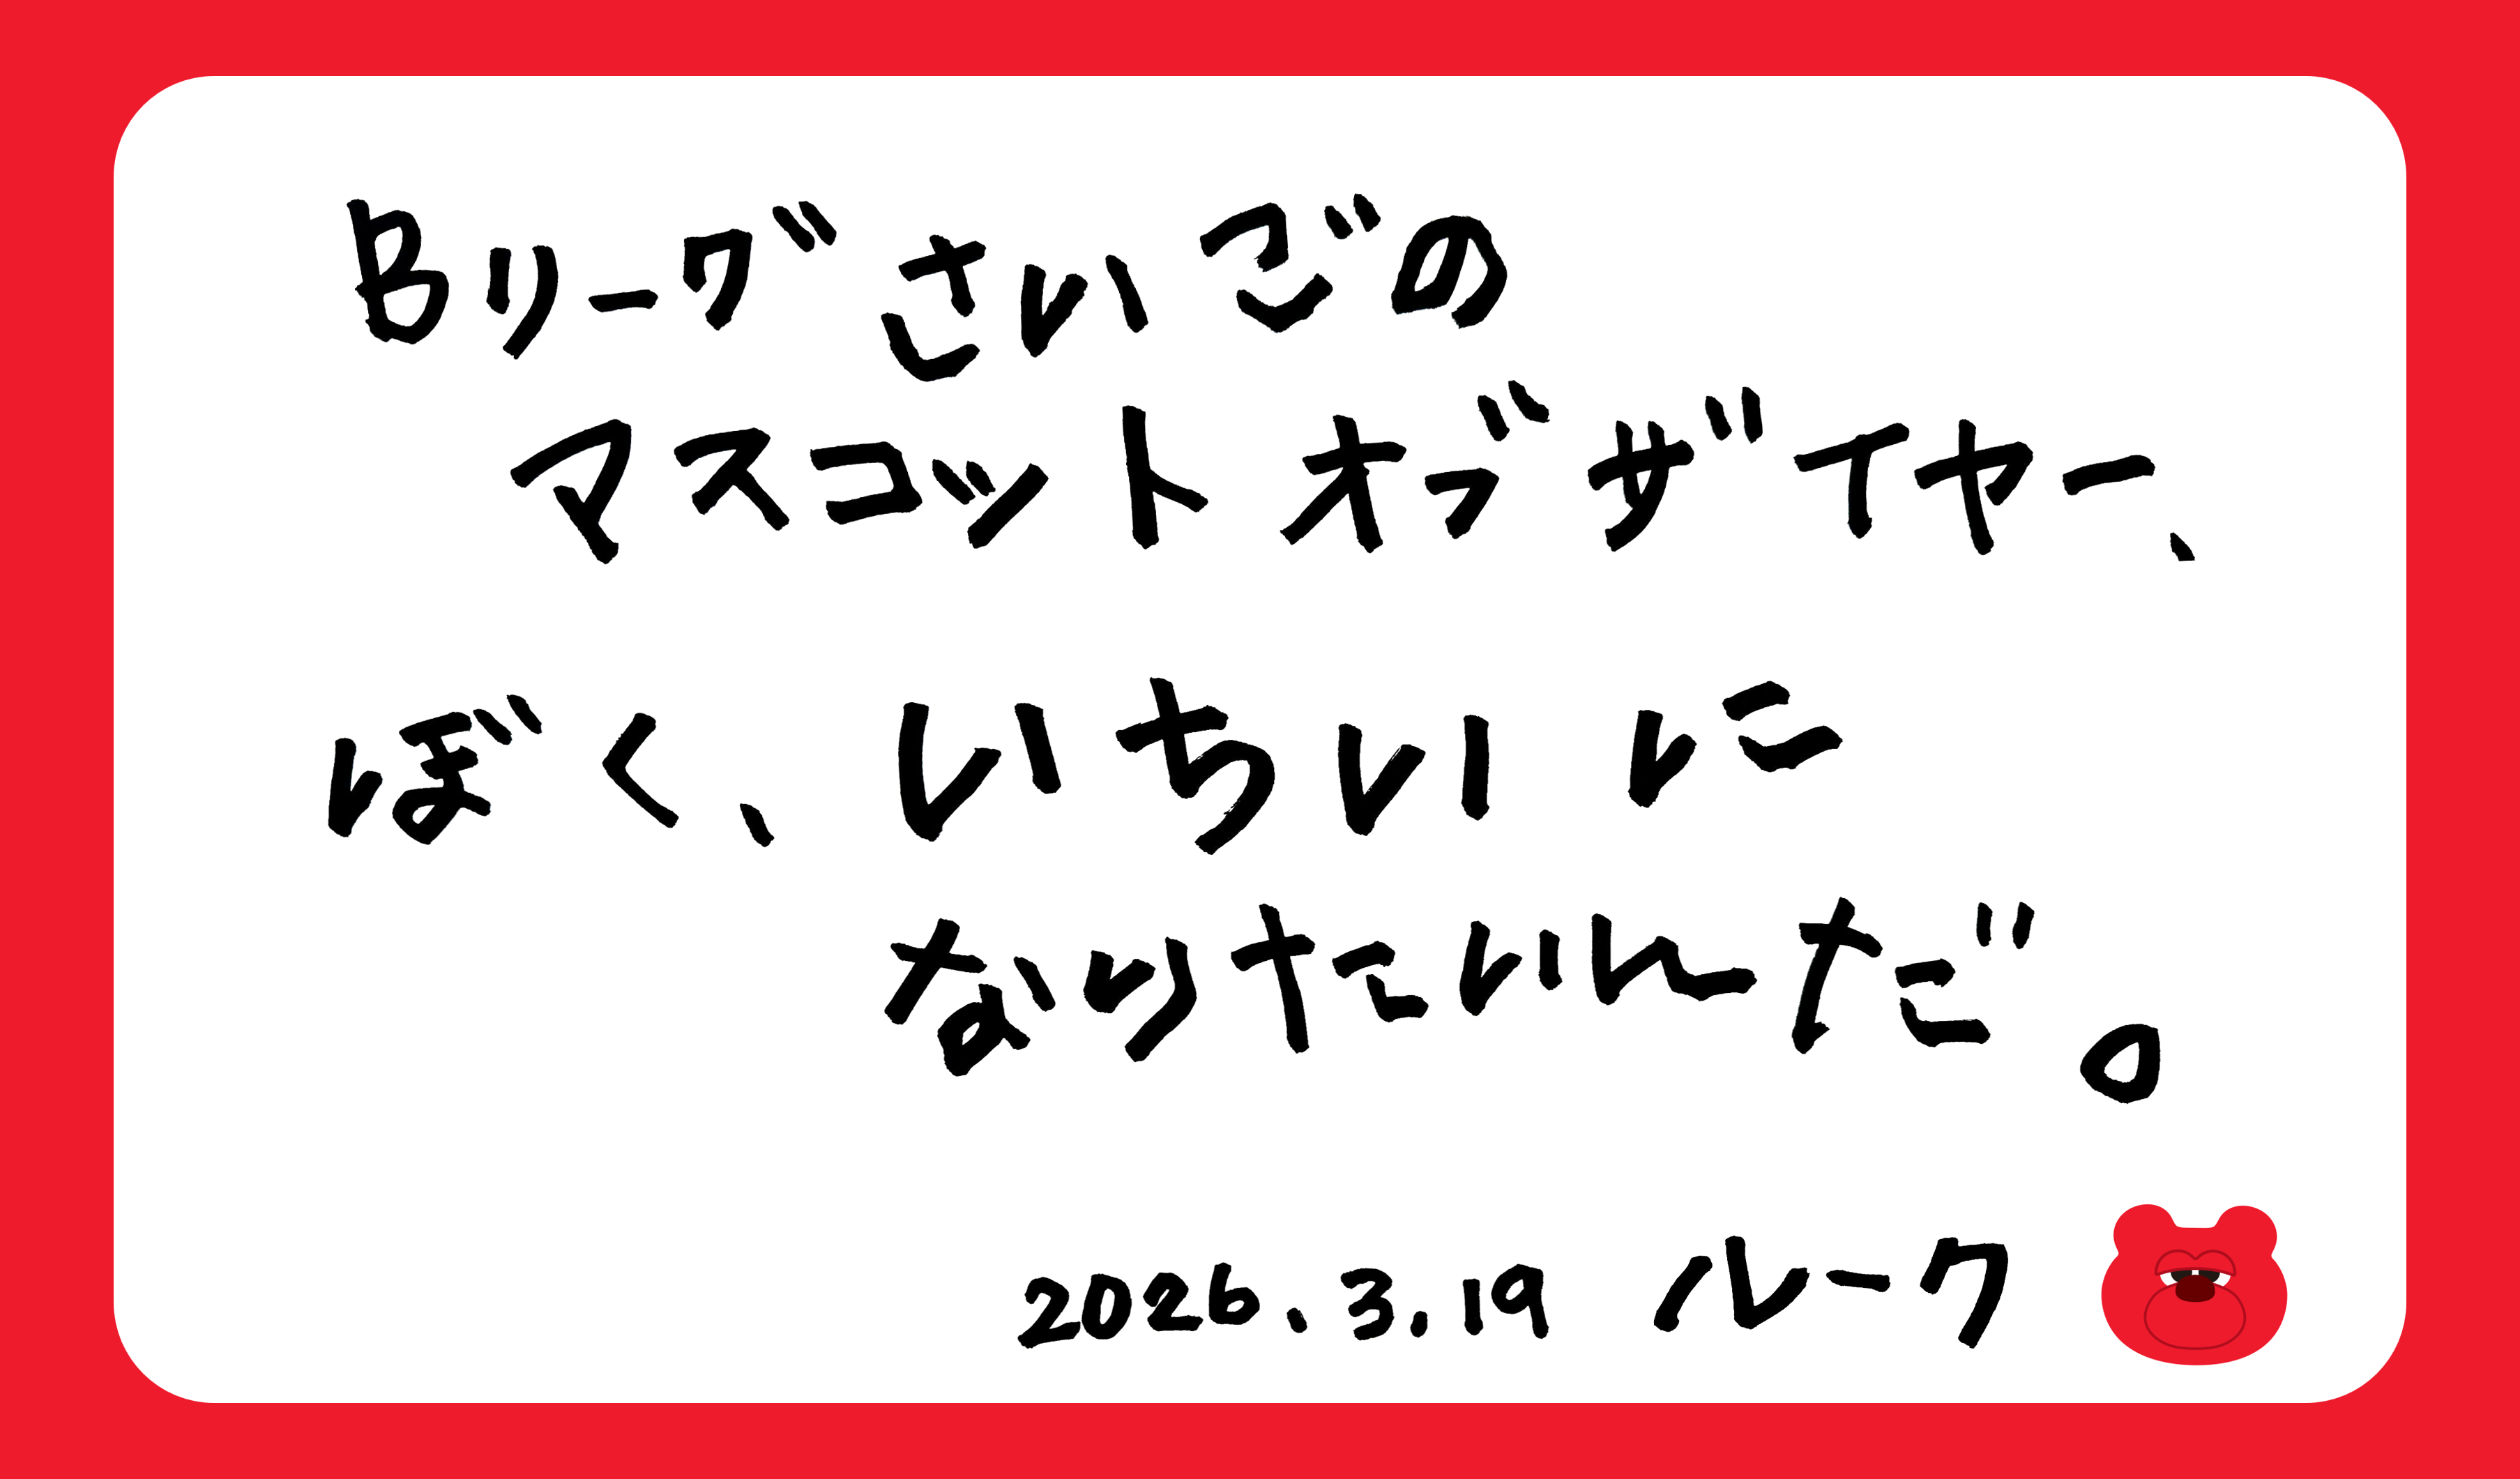 Bリーグさいごの
マスコットオブザイヤー、
ぼく、いちいに
なりたいんだ。
2026.3.19 ルーク